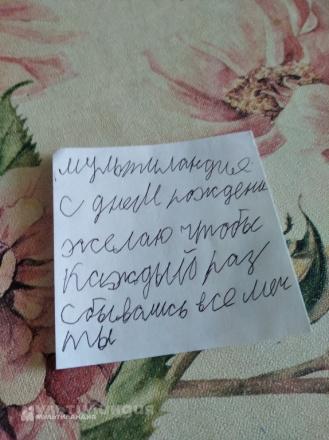 мультиландия
с днем рождени
желаю чтобы
каждый раз
сбывались все меч
ты
мультиландия